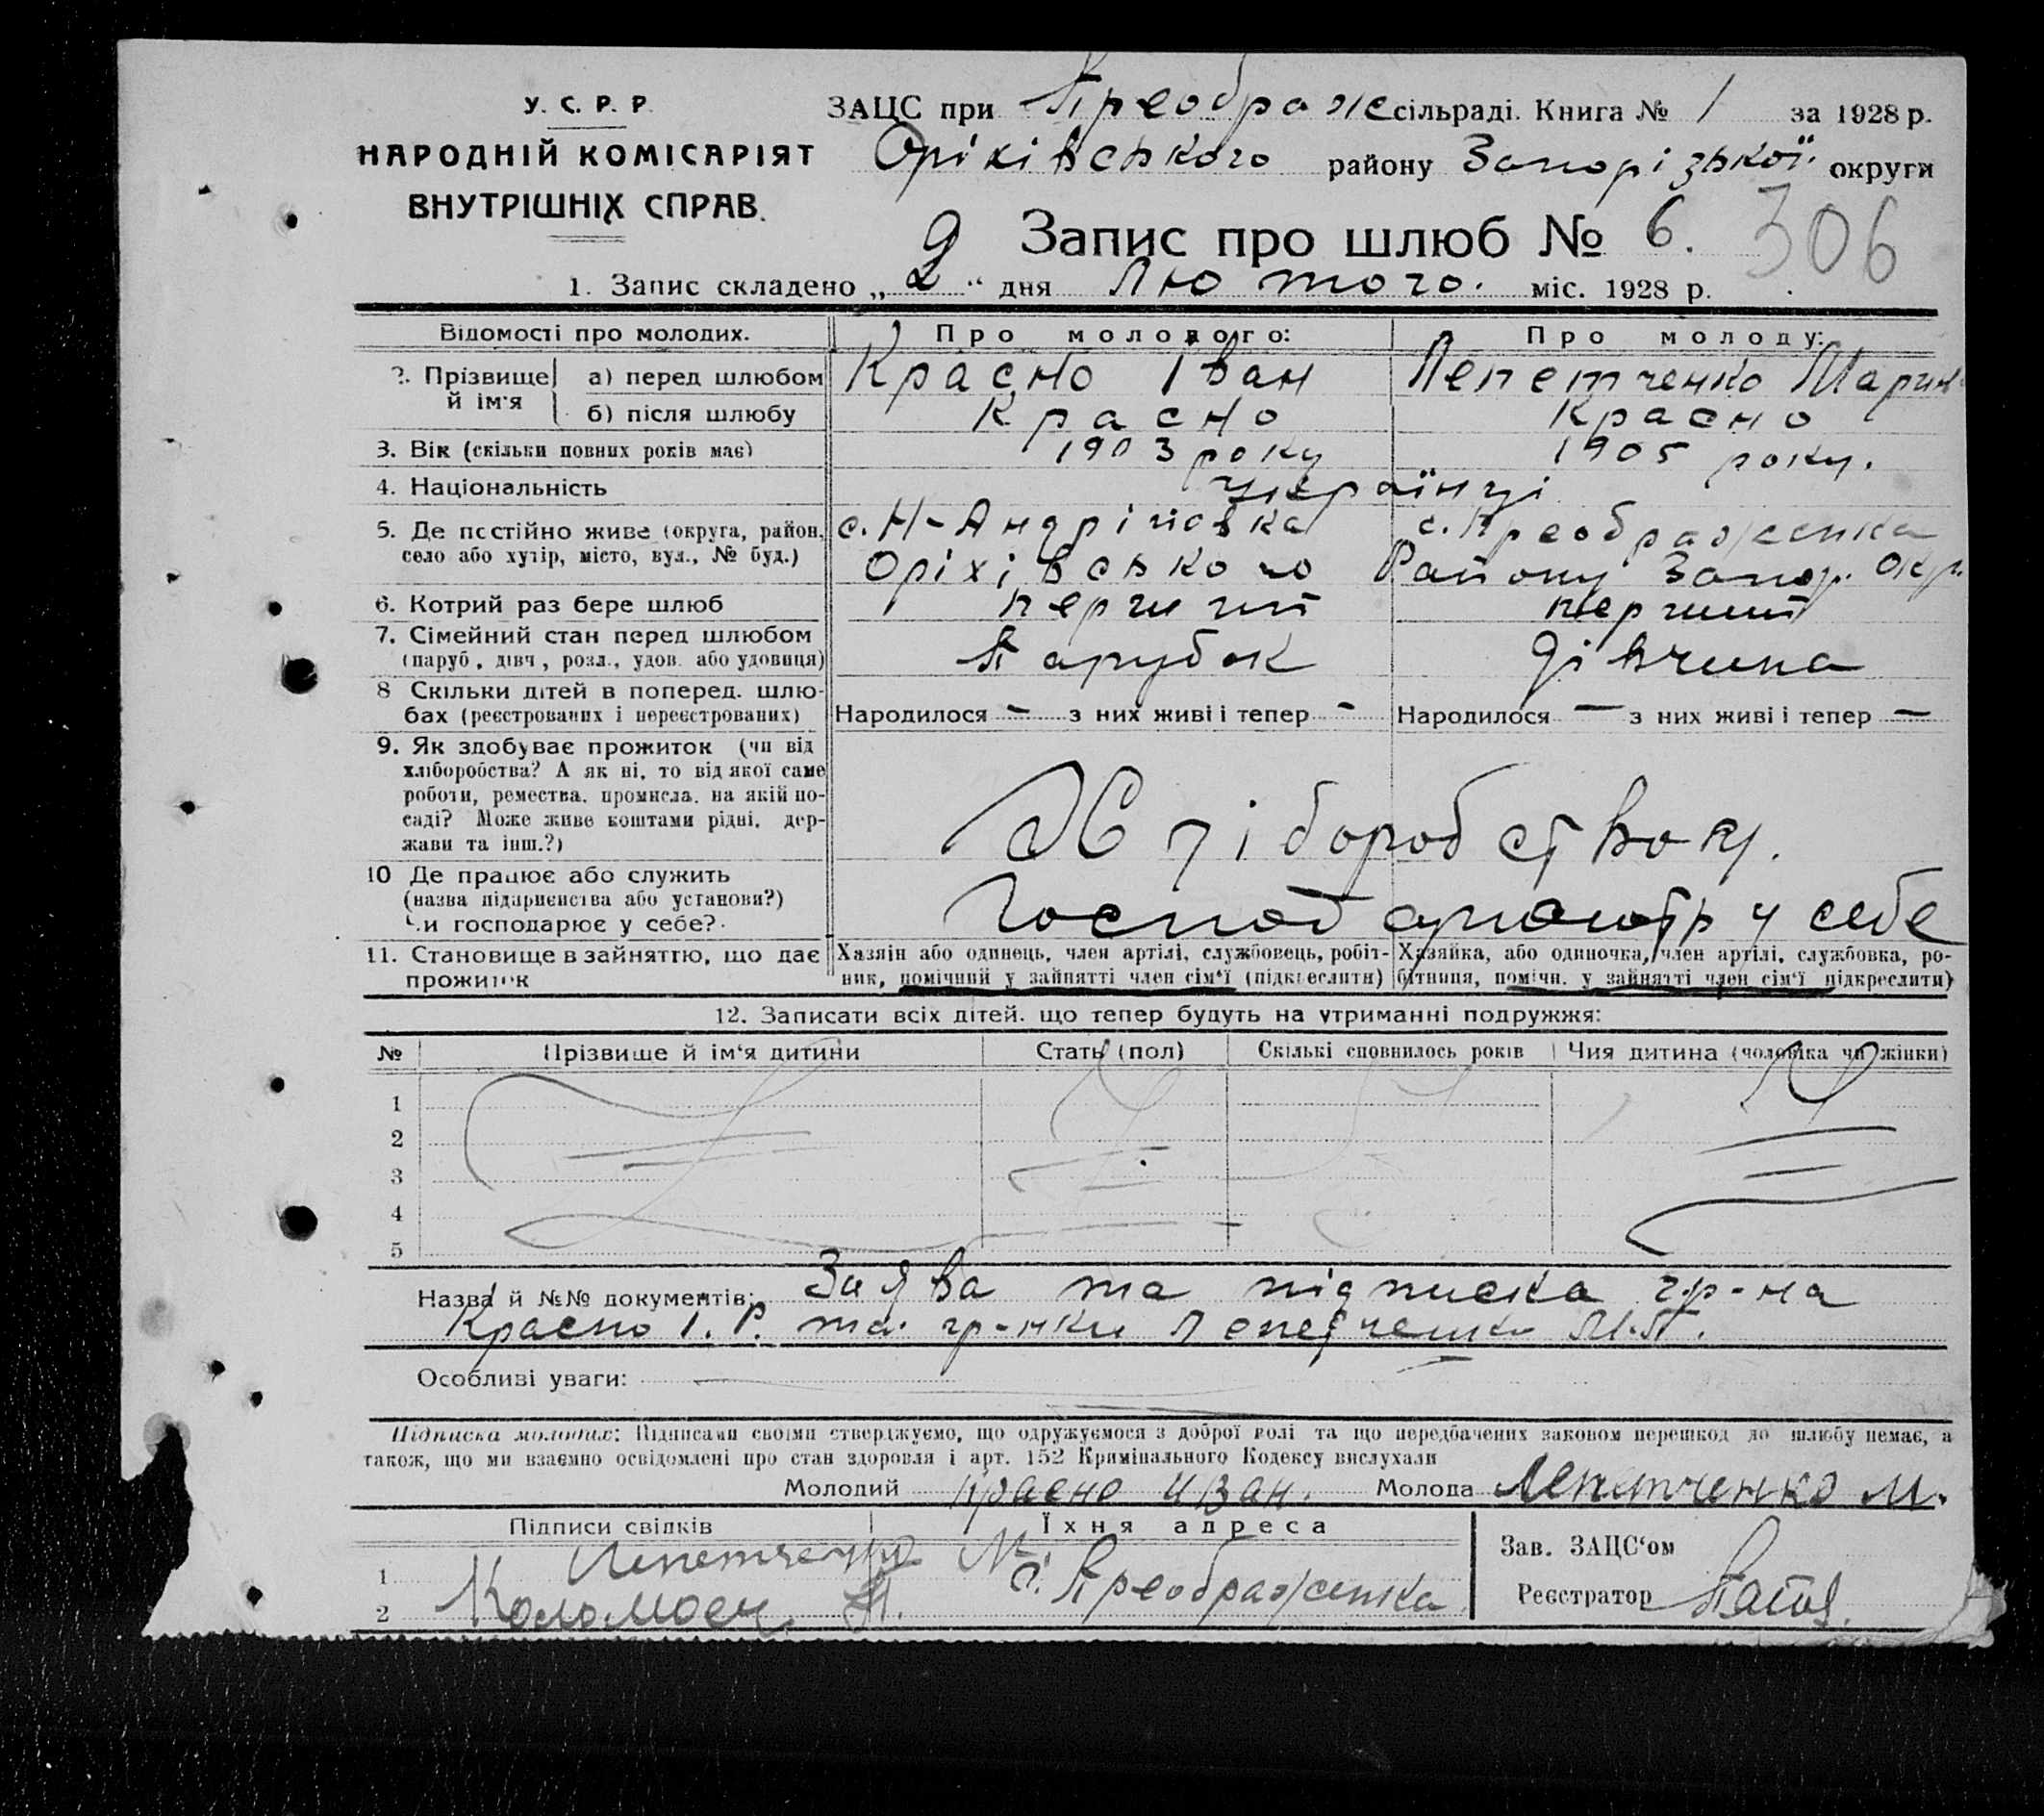 У. С. Р. Р.
НАРОДНІЙ КОМІСАРІЯТ
ВНУТРІШНІХ СПРАВ.
ЗАЦС при Преображ сільраді. Книга № 1 за 1928 р.
Оріхівського району Запорізької округи
Запис про шлюб № 6. 306
1. Запис складено „ 2 “ дня Лютого. міс. 1928 р.
Відомості про молодих. Про молодого: Про молоду:
2. Прізвище й ім'я а) перед шлюбом Красно Іван Лепетченко Марин
б) після шлюбу Красно Красно
3. Вік (скільки повних років має) 1903 року 1905 року.
4. Національність Українці
5. Де постійно живе (округа, район, с. Н-Андріівка с. Преображенка
село або хутір, місто, вул., № буд.) Оріхівського Району Запор. Окр.
6. Котрий раз бере шлюб перший перший
7. Сімейний стан перед шлюбом Парубок Дівчина
(паруб., дівч., розл., удов. або удовиця)
8 Скільки дітей в поперед. шлю-
бах (реєстрованих і нереєстрованих) Народилося — з них живі і тепер - Народилося — з них живі і тепер —
9. Як здобуває прожиток (чи від
хліборобства? А як ні, то від якої саме
роботи, ремества, промисла, на якій по-
саді? Може живе коштами рідні, дер-
жави та інш.?)
Хліборобством.
10 Де працює або служить
(назва підприємства або установи?)
Чи господарює у себе?
у себе
11. Становище в зайняттю, що дає
прожиток
Хазяїн або одинець, член артілі, службовець, робіт-
ник, помічний у зайнятті член сім'ї (підкреслити)
Хазяйка, або одиночка, член артілі, службовка, ро-
бітниця, помічн. у зайнятті член сім'ї підкреслити)
12. Записати всіх дітей. що тепер будуть на утриманні подружжя:
№ Прізвище й ім'я дитини Стать (пол) Скількі сповнилось років Чия дитина (чоловіка чи жінки)
1
2
3
4
5
Назва й №№ документів: Заява та підписка гр-на
Красно І. Р. та гр-нки Лепетченко М. П.
Особливі уваги:
Підписка молодих: Підписами своїми стверджуємо, що одружуємося з доброї волі та що передбачених законом перешкод до шлюбу немає, а
також, що ми взаємно освідомлені про стан здоровля і арт. 152 Кримінального Кодексу вислухали
Молодий Красно Иван. Молода Лепетченко М.
Підписи свідків Їхня адреса Зав. ЗАЦС'ом
1 Лепетченко М.
2 Коломоец П. с. Преображенка
Реєстратор